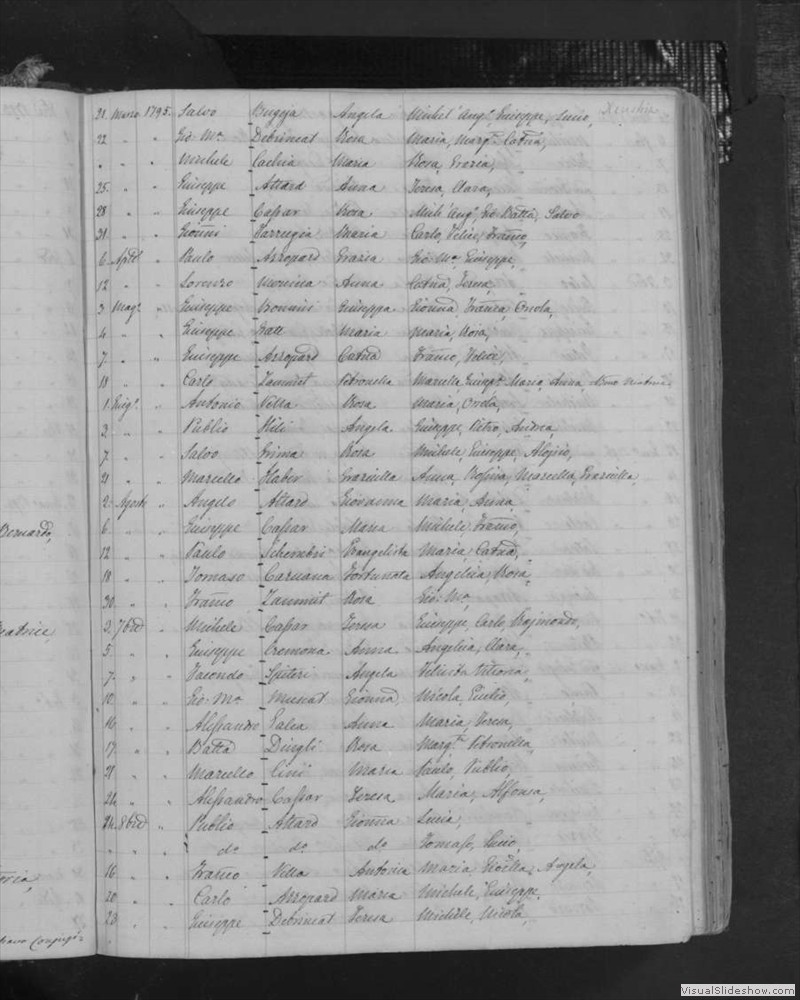 21. Marzo 1795. Salvo Bugeja Angela Michel'Ang.o Giuseppe, Lucio,
22 " " Gio: M.a Debrincat Rosa Maria, Marg.ta Catna,
" " " Michele Cachia Maria Rosa, Grazia,
25. " " Giuseppe Attard Anna Teresa, Clara,
28. " " Giuseppe Cassar Rosa Mich'Ang.o, Gio Batta, Salvo
31. " " Gionni Farrugia Maria Carlo, Felice, Franco,
6. Aprile " Paulo Azzopard Grazia Gio: M.a, Giuseppe,
12 " " Lorenzo Anna Catna, Teresa,
3 Mag.o " Giuseppe Bonnici Giuseppa Gionna, Franca,
4 " " Giuseppe Gatt Maria Maria, Rosa,
7 " " Giuseppe Azzopard Catna Franco, Felice,
18 " " Carlo Zammit Petronella Marella Giusep.a Maria, Anna,
1. Giug.o " Antonio Vella Rosa Maria,
3. " " Publio Hili Angela Giuseppe, Pietro, Andrea,
7. " " Salvo Grima Rosa Michele, Giuseppe, Aloisio,
21 " " Marcello Haber Graziella Anna, Rosina, Marcella, Graziella,
2. Agosto " Angelo Attard Giovanna Maria, Anna,
Bernardo,
6 " " Giuseppe Cassar Maria Michele, Franco,
12 " " Paulo Schembri Evangelista Maria, Catna,
18 " " Tomaso Caruana Fortunata Angelica, Rosa,
30. " " Franco Zammit Rosa Gio: M.a,
2. 7bre " Michele Cassar Teresa Giuseppe, Carlo, Rajmondo,
5. " " Giuseppe Cremona Anna Angelica, Clara,
7. " " Facondo Spiteri Angela Felicita
10. " " Gio: M.a Muscat Gionna Nicola,
16 " " Alessandro Galea Anna Maria, Teresa,
17. " " Batta Dingli Rosa Marg.ta Petronilla,
21 " " Marcello Cini Maria Paulo, Publio,
24. " " Alessandro Cassar Teresa Maria, Alfonsa,
24. 8bre " Publio Attard Gionna Lucia,
" " " do. do. do. Tomaso, Lucio,
16 " " Franco Vella Antonia Maria, Angela,
20 " " Carlo Azzopard Maria Michele, Giuseppe,
28 " " Giuseppe Debrincat Teresa Michele, Nicola,
VisualSlideshow.com